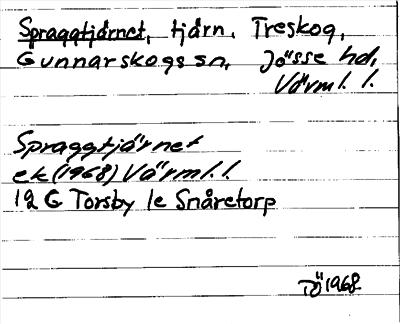 Spraggtjärnet, tjärn, Treskog,
Gunnarskogs sn, Jösse hd,
Värml. l.
Spraggtjärnet
ek (1968) Värml. l.
12 G Torsby 1e Snåretorp
TÖ 1968